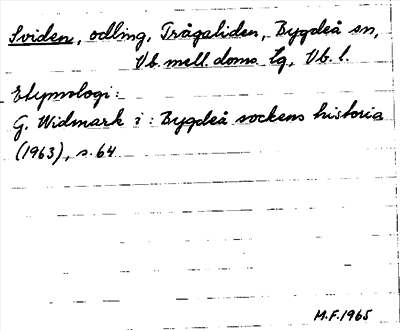 Sviden, odling, Trågaliden, Bygdeå sn,
Vb. mell. doms. lg, Vb. l.
Etymologi:
G. Widmark i: Bygdeå sockens historia
(1963), s. 64
M.F. 1965